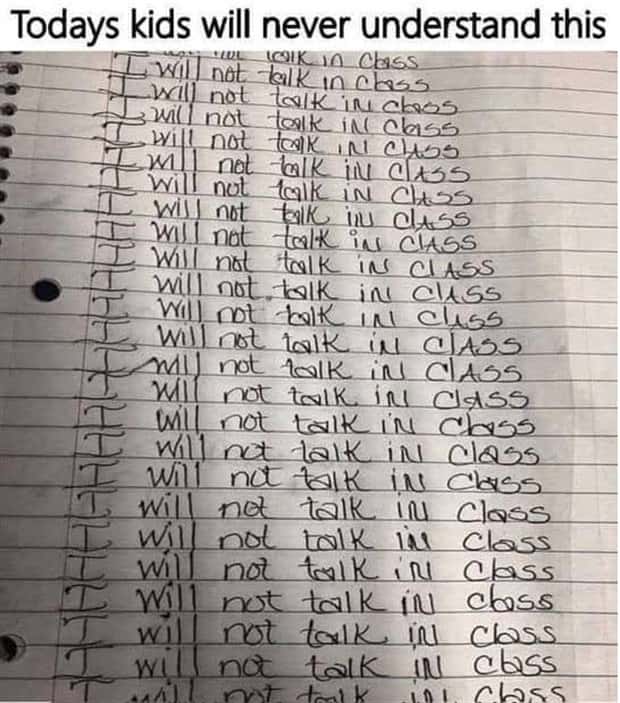 Todays kids will never understand this
talk in class
I will not talk in class
I will not talk in class
I will not talk in class
I will not talk in class
I will not talk in clASS
I will not talk in clASS
I will not talk in clASS
I will not talk in clASS
I will not talk in clASS
I will not talk in clASS
I will not talk in class
I will not talk in clASS
I will not talk in clASS
I will not talk in class
I will not talk in class
I will not talk in class
I will not talk in class
I will not talk in class
I will not talk in class
I will not talk in class
I will not talk in class
I will not talk in class
I will not talk in class
I will not talk in class